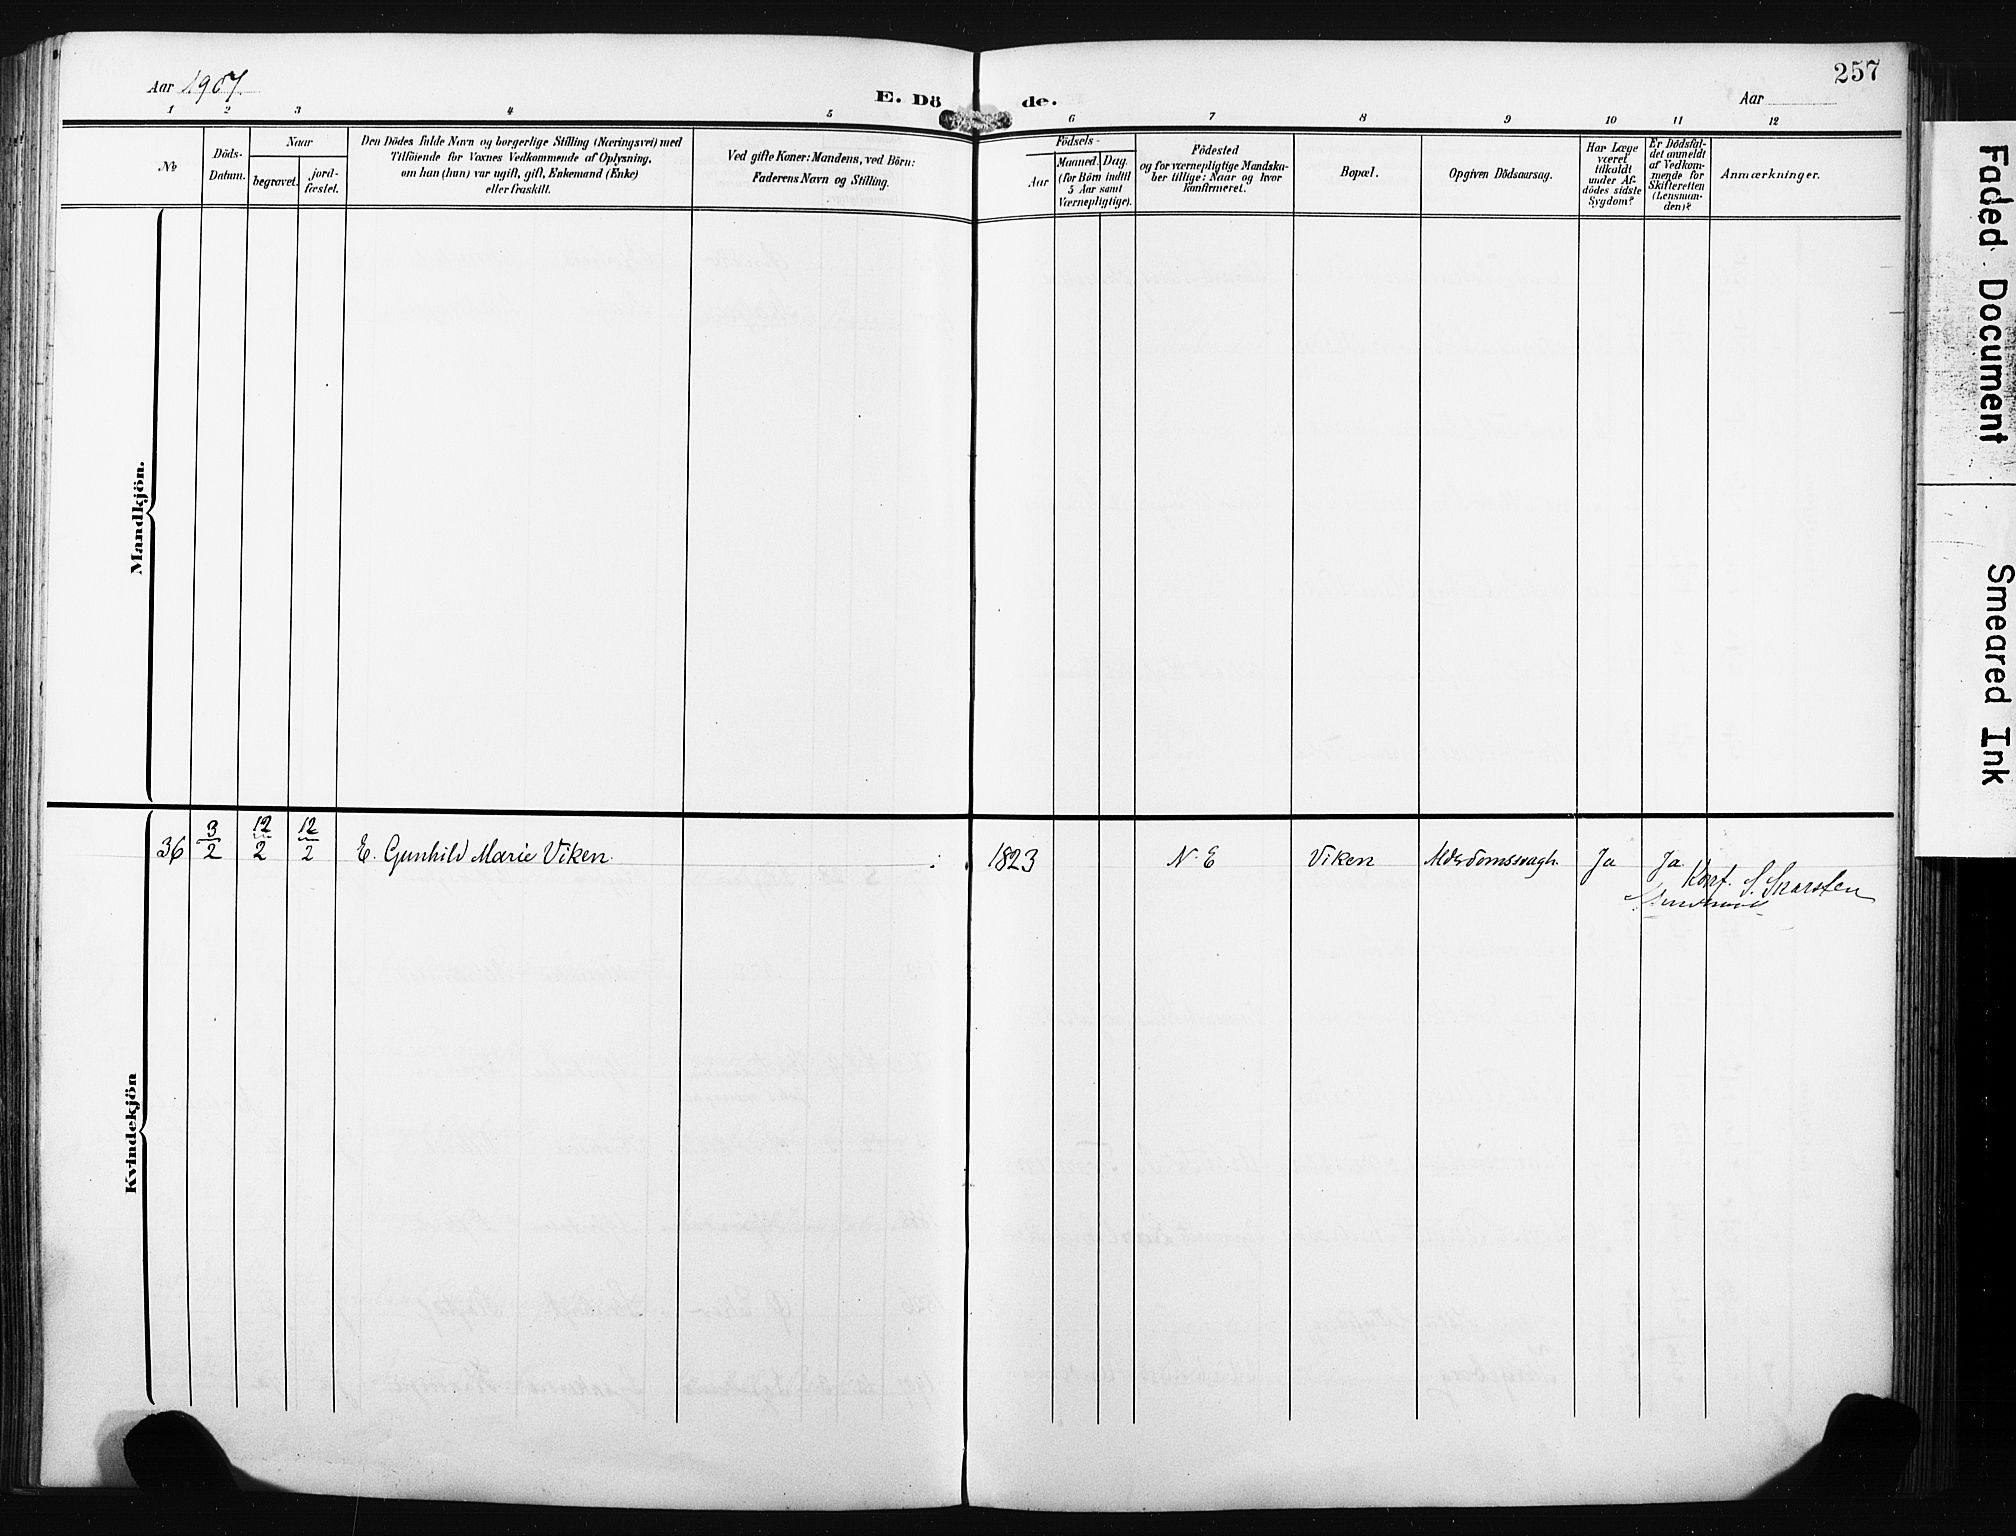 Aar 1907.
E. Dö de.
Aar
257
1 2 3 4 5 6 7 8 9 10 11 12
No
Döds-
Datum.
Naar
begravet.
jord-
fæstet.
Den Dödes fulde Navn og borgerlige Stilling (Næringsvei) med
Tilföiende for Voxnes Vedkommende af Oplysning,
om han (hun) var ugift, gift, Enkemand (Enke)
eller fraskilt.
Ved gifte Koner: Mandens, ved Börn:
Faderens Navn og Stilling.
Födsels-
Aar
Maaned. Dag.
(for Börn indtil
5 Aar samt
Værnepligtige).
Födested
og for værnepligtige Mandska-
ber tillige: Naar og hvor
konfirmeret.
Bopæl.
Opgiven Dödsaarsag.
Har Læge
været
tilkaldt
under Af-
dödes sidste
Sygdom?
Er Dödsfal-
det anmeldt
af Vedkom-
mende for
Skifteretten
(Lensman-
den)?
Anmærkninger.
Mandkjön.
Kvindekjön
36 3/2 12/2 12/2 E. Gunhild Marie Viken. 1823 N. E Viken Alderdomssvagh. Ja Ja
Konf. S. Skarsten
Faded Document
Smeared Ink